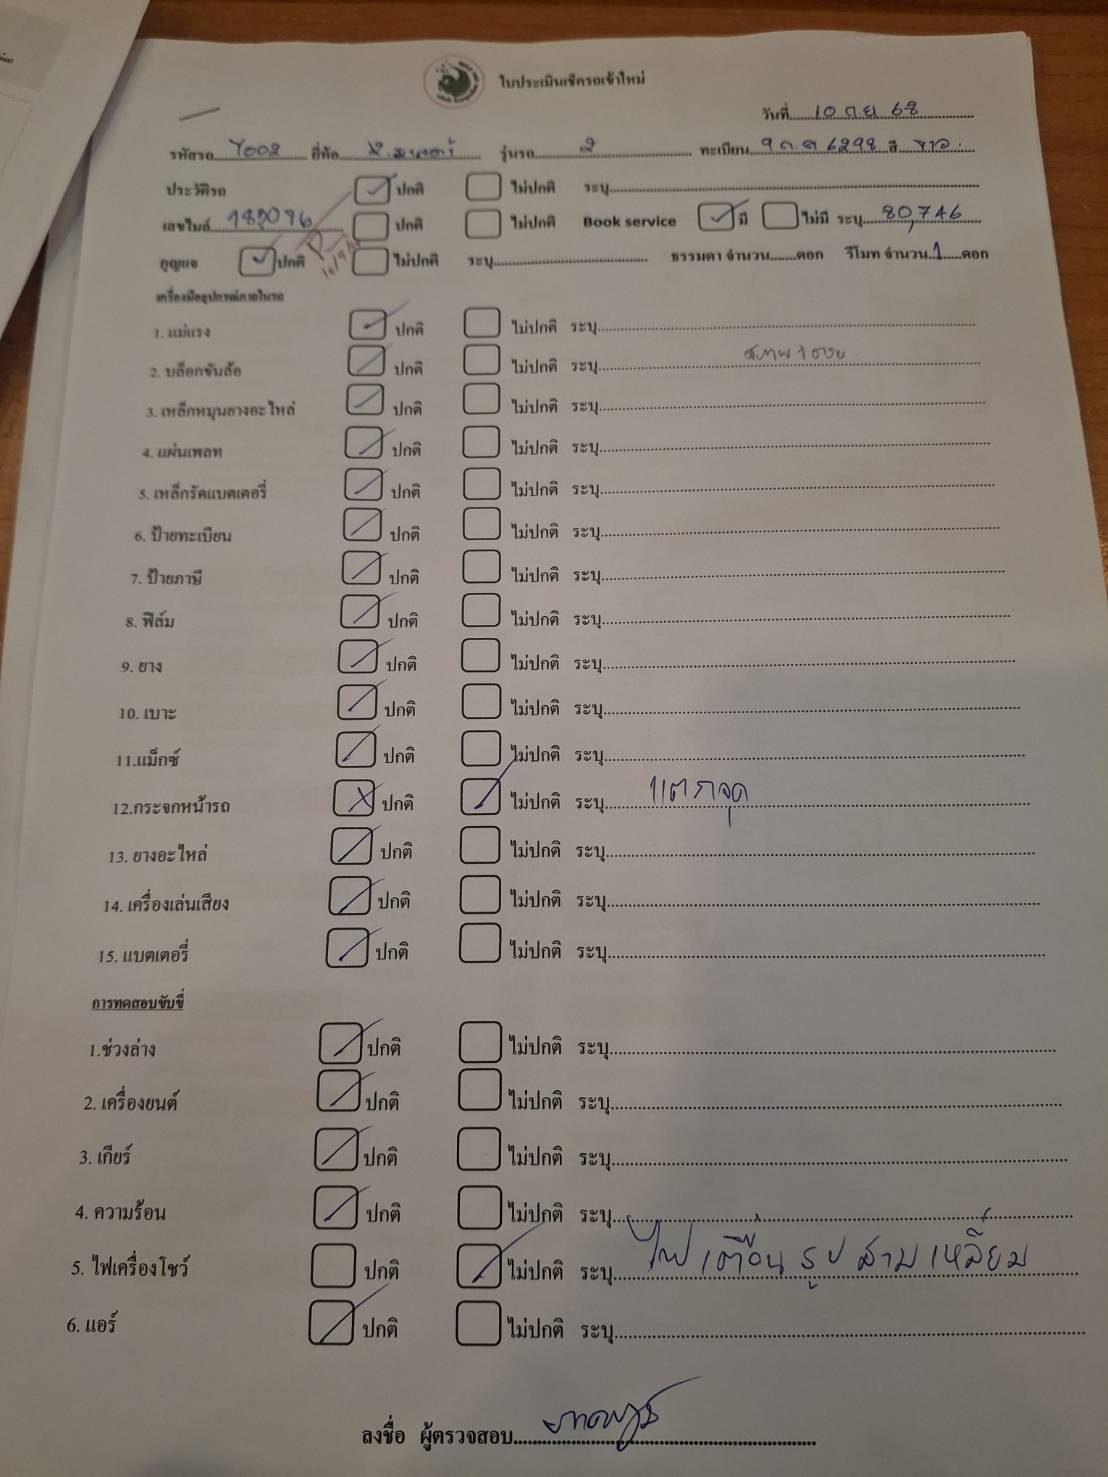 ใบประเมินเช็ครถเข้าใหม่
วันที่ 10 ก.ย 68
รหัสรถ Y002 ยี่ห้อ รุ่นรถ 2 ทะเบียน 6298 สี ขาว
ประวัติรถ ปกติ ไม่ปกติ ระบุ
เลขไมล์ ปกติ ไม่ปกติ Book service มี ไม่มี ระบุ 80,746
กุญแจ ปกติ ไม่ปกติ ระบุ ธรรมดา จำนวน ดอก รีโมท จำนวน 1 ดอก
เครื่องมืออุปกรณ์ภายในรถ
1. แม่แรง ปกติ ไม่ปกติ ระบุ
2. บล็อกขันล้อ ปกติ ไม่ปกติ ระบุ
3. เหล็กหมุนยางอะไหล่ ปกติ ไม่ปกติ ระบุ
4. แผ่นเพลท ปกติ ไม่ปกติ ระบุ
5. เหล็กรัดแบตเตอรี่ ปกติ ไม่ปกติ ระบุ
6. ป้ายทะเบียน ปกติ ไม่ปกติ ระบุ
7. ป้ายภาษี ปกติ ไม่ปกติ ระบุ
8. ฟิล์ม ปกติ ไม่ปกติ ระบุ
9. ยาง ปกติ ไม่ปกติ ระบุ
10. เบาะ ปกติ ไม่ปกติ ระบุ
11.แม็กซ์ ปกติ ไม่ปกติ ระบุ
12.กระจกหน้ารถ ปกติ ไม่ปกติ ระบุ
13. ยางอะไหล่ ปกติ ไม่ปกติ ระบุ
14. เครื่องเล่นเสียง ปกติ ไม่ปกติ ระบุ
15. แบตเตอรี่ ปกติ ไม่ปกติ ระบุ
การทดสอบขับขี่
1.ช่วงล่าง ปกติ ไม่ปกติ ระบุ
2. เครื่องยนต์ ปกติ ไม่ปกติ ระบุ
3. เกียร์ ปกติ ไม่ปกติ ระบุ
4. ความร้อน ปกติ ไม่ปกติ ระบุ
5. ไฟเครื่องโชว์ ปกติ ไม่ปกติ ระบุ ไฟเตือนรูปสามเหลี่ยม
6. แอร์ ปกติ ไม่ปกติ ระบุ
ลงชื่อ ผู้ตรวจสอบ